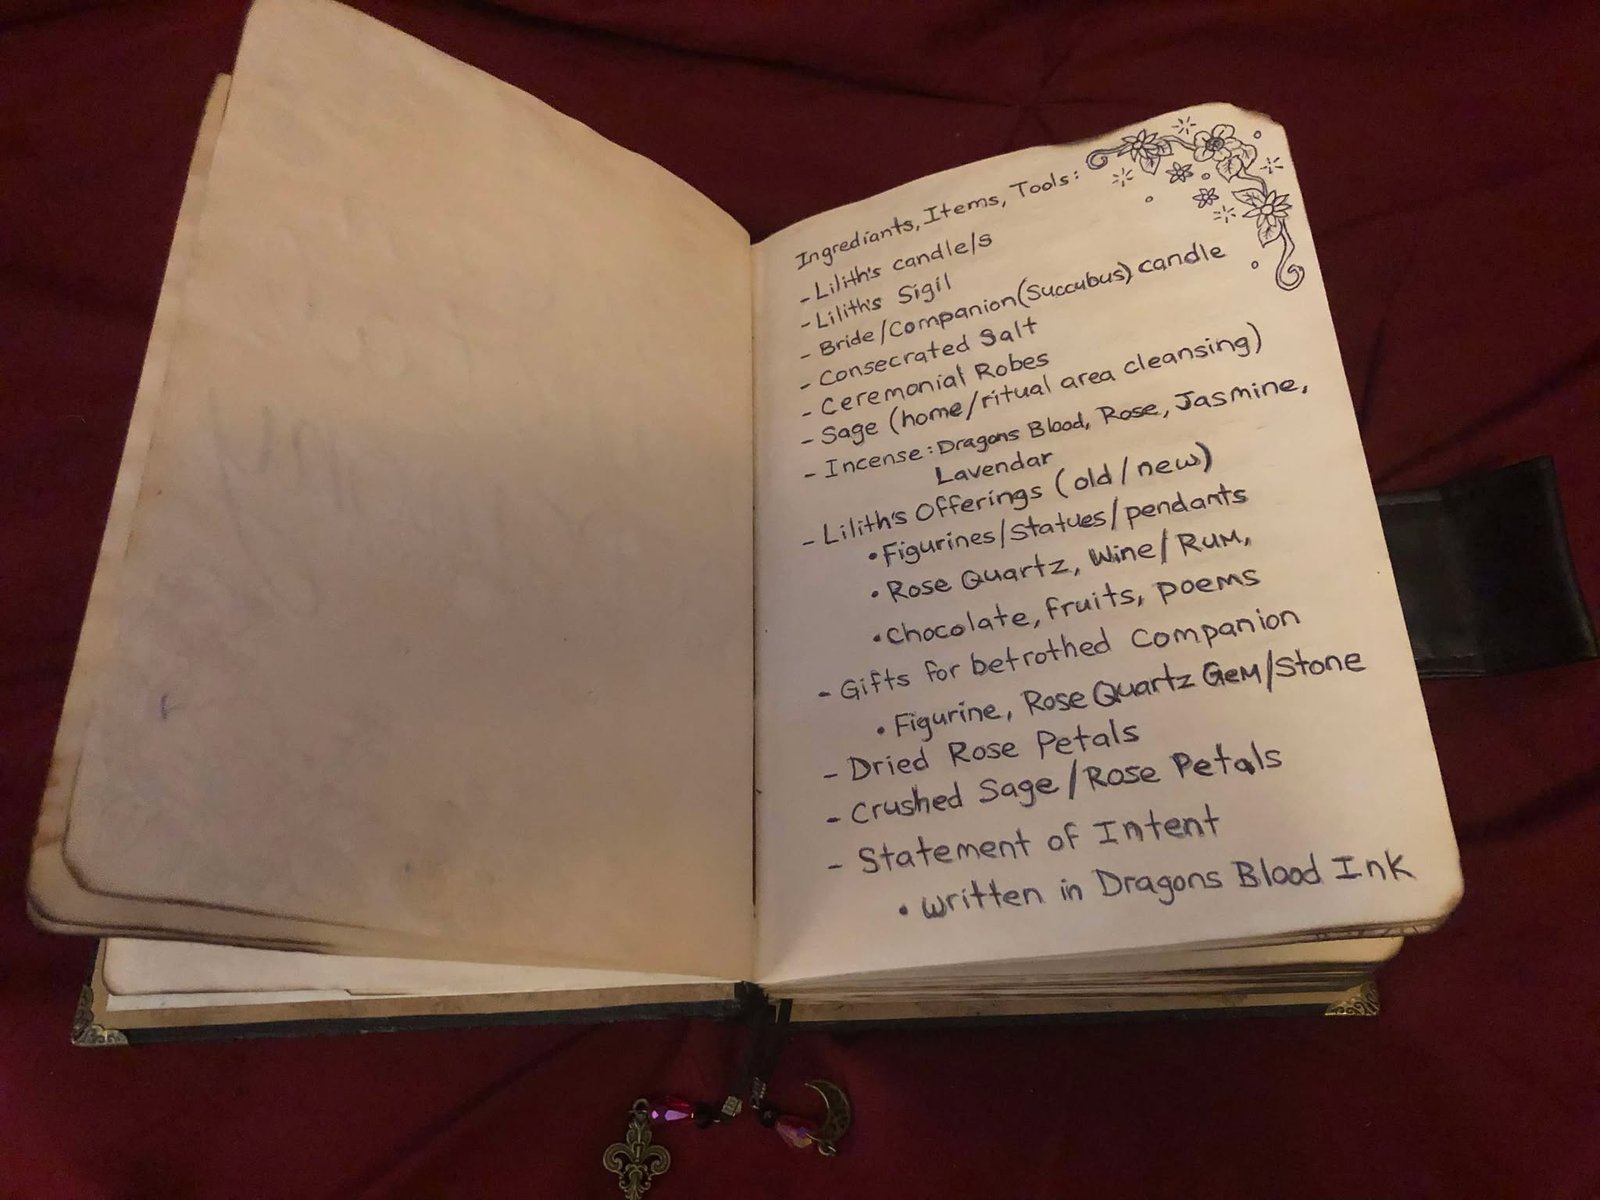 Ingrediants, Items, Tools:
- Lilith's candle/s
- Lilith's Sigil
- Bride/Companion (Succubus) candle
- Consecrated Salt
- Ceremonial Robes
- Sage (home/ritual area cleansing)
- Incense: Dragons Blood, Rose, Jasmine,
Lavendar
- Lilith's Offerings (old/new)
• Figurines/Statues/pendants
• Rose Quartz, Wine/Rum,
• Chocolate, fruits, poems
- Gifts for betrothed Companion
• Figurine, Rose Quartz Gem/Stone
- Dried Rose Petals
- Crushed Sage/Rose Petals
- Statement of Intent
• written in Dragons Blood Ink